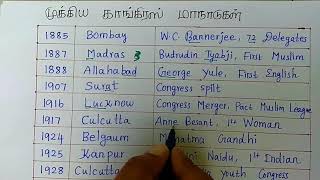 முக்கிய காங்கிரஸ் மாநாடுகள்
1885 Bombay W.C. Bannerjee, 72 Delegates
1887 Madras 3 Budrudin Tyabji, First Muslim
1888 Allahabad George Yule, First English
1907 Surat Congress Split
1916 Lucknow Congress Merger, Pact Muslim League
1917 Culcutta Anne Besant, 1st Woman
1924 Belgaum Gandhi
1925 Kanpur Naidu, 1st Indian
1928 Culcutta youth Congress